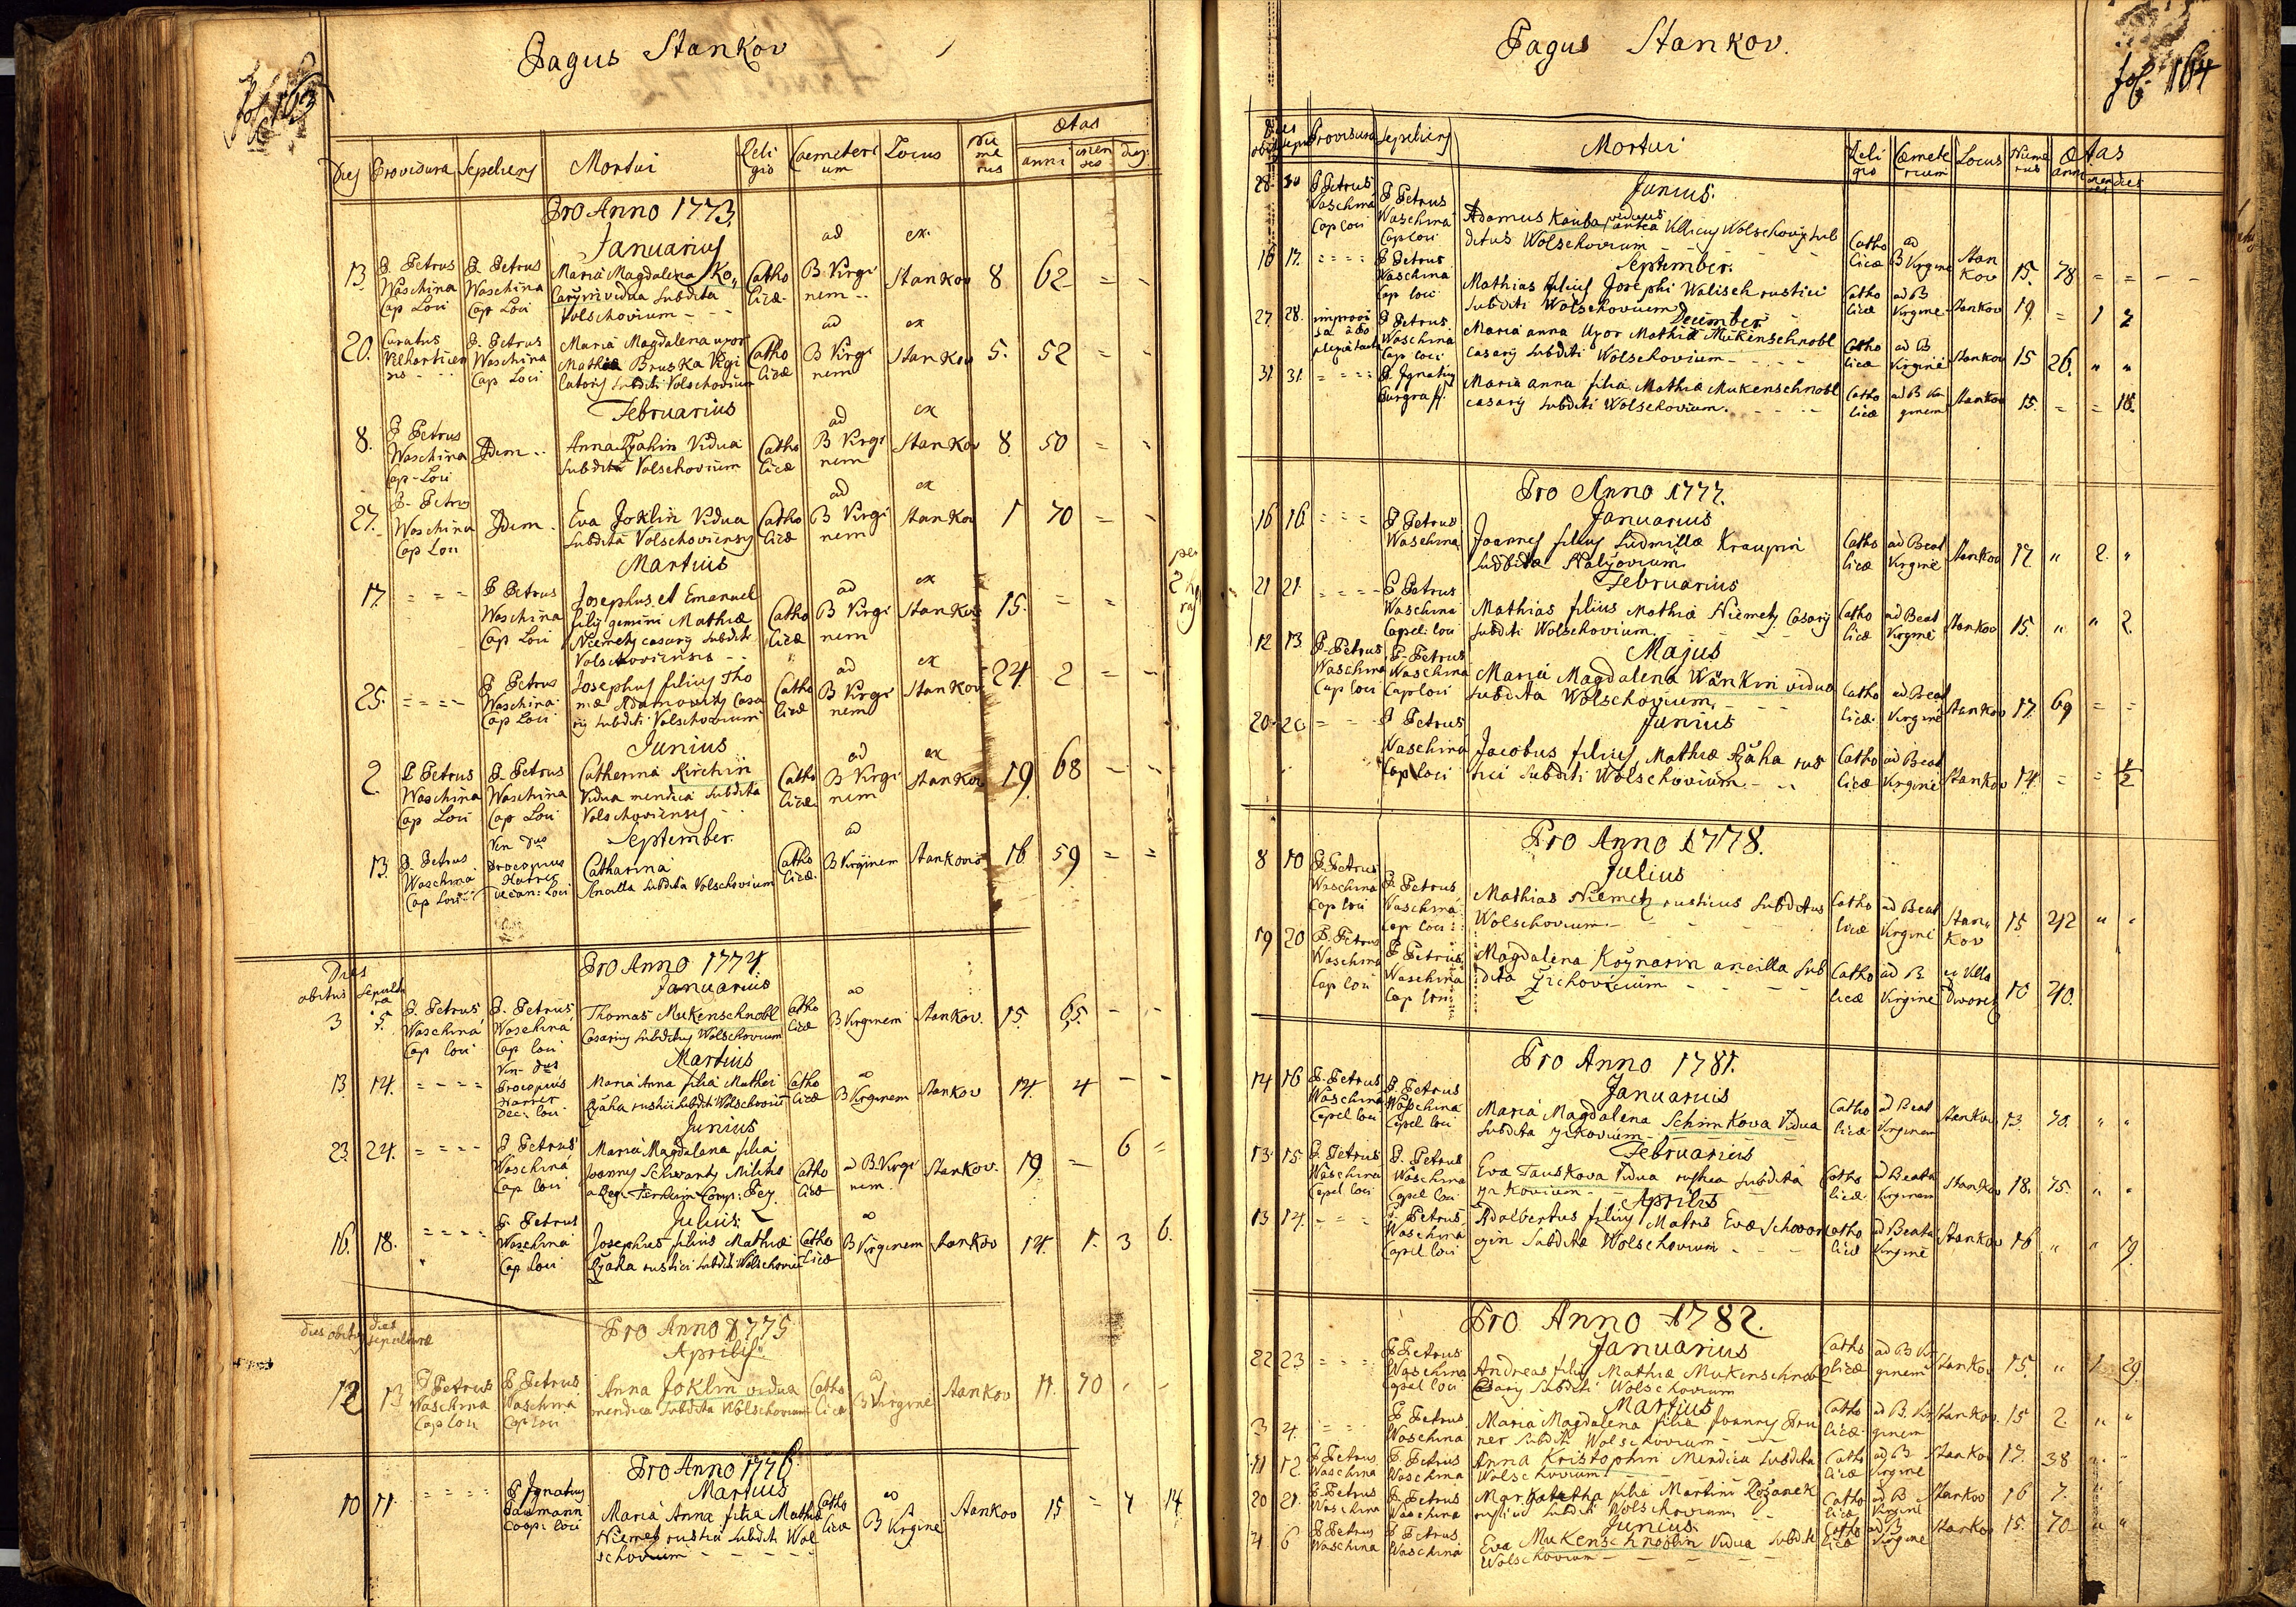 Pagus Stankov
fol 163
Dies Providura Sepeliens Mortui Religio Caemeterium Locus Numerus Ætas
anni menses dies
Pro Anno 1773
Januarius
13. P. Petrus Waschina Cap Loci P. Petrus Waschina Cap Loci Maria Magdalena Ko„ vidua Subdita Volschovium Catho licæ ad B Virginem ex Stankov 8 62 = -
20. Curatus P. Petrus Waschina Cap Loci Maria Magdalena uxor Mathiæ Bruska Subditi Volschovium Catho licæ ad B Virginem ex Stankov 5. 52 = -
Februarius
8. P Petrus Waschina Cap-Loci Idem Anna Vidua Subdita Volschovium Catho licæ ad B Virginem ex Stankov 8 50 = -
27. P- Petrus Waschina Cap Loci Idem Eva Joklin Vidua Subdita Volschoviensis Catho licæ ad B Virginem ex Stankov 1 70 = -
Martius
17. = = = P Petrus Waschina Cap Loci Josephus et Emanuel filij gemini Mathiæ Niemetz casarij Subditi Volschoviensis Catho licæ ad B Virginem ex Stankov 15. = =
25. = = = - P Petrus Waschina Cap Loci Josephus filius Tho mæ Adamovitz Casa rij Subditi Volschovium Catho licæ ad B Virginem ex Stankov 24. 2 = -
Junius
2 P Petrus Waschina Cap Loci P. Petrus Waschina Cap Loci Catherina Kirchin Vidua mendica Subdita Volschoviensis Catho licæ ad B Virginem ex Stankov 19. 68 - -
September.
13. P. Petrus Waschina Cap Loci Ven Dus Procopius Harrer Decan: Loci Catharina Ancilla Subdita Volschovium Catho licæ. ad B Virginem Stankov 16 59 = =
Pro Anno 1774
Dies obitus Sepultura
Januarius
3 5. P. Petrus Waschina Cap loci P. Petrus Waschina Cap loci Thomas Mukenschnobl Casarius Subditus Wolschovium Catho licæ ad B Virginem Stankov. 15. 65. - -
Martius
13 14. = - = = Ven- Dus Procopius Harrer Dec: loci Maria Anna filia Mathei Rzaha rustici Subditi Wolschovium Catho licæ ad B Virginem Stankov 14. 4 - -
Junius
23. 24. = = = = P Petrus Waschina Cap loci Maria Magdalena filia Joannis Schwantz Militis Catho licæ ad B. Virginem Stankov. 19. - 6 =
Julius
16. 18. = = = = P. Petrus Waschina Cap loci Josephus filius Mathiæ Rzaha rustici Subditi Wolschovium Catho licæ ad B Virginem Stankov 14. 1. 3 6.
Pro Anno 1775
dies obitus dies sepulturæ
Aprilis
12 13 P Petrus Waschina Cap loci P Petrus Waschina Cap loci Anna Joklin vidua mendica Subdita Wolschovium Catho licæ ad B Virginē Stankov 11. 70 - -
Pro Anno 1776
Martius
10 11. = = = = P Ignatius Coop: loci Maria Anna filia Mathiæ Niemetz rustici Subditi Wol schovium Catho licæ ad B Virginē Stankov 15 = 4 14.
Pagus Stankov.
fol. 164
Dies obit sepul Providura Sepeliens Mortui Religio Cæmeterium Locus Numerus Ætas
anni menses dies
Junius.
28. 30 P Petrus Waschina Cap loci P Petrus Waschina Cap loci Adamus Kauba, viduus antea Villicus Wolschovij Sub ditus Wolschovium Catho licæ ad B Virginē Stankov 15. 78 = =
September.
16 17. = = = = P Petrus Waschina Cap loci Mathias filius Josephi Walisch rustici Subditi Wolschovium Catho licæ ad B Virginē Stankov 19. = 1 2
December
27. 28. P Petrus. Waschina Cap loci Maria anna Uxor Mathiæ Mukenschnobl casarij Subditi Wolschovium Catho licæ ad B Virginē Stankov 15 26. „ „
31. 31. = = = = P. Ignatius Burgraff. Maria anna filia Mathiæ Mukenschnobl casarij Subditi Wolschovium. Catho licæ ad B Virginem Stankov 15. = = 18.
Pro Anno 1777.
Januarius
16 16. = = = P Petrus Waschina Joannes filius Ludmillæ Kraupin Subditæ Catho licæ ad Beat Virginē Stankov 17. „ 2. „
Februarius
21 21. = = = - P Petrus Waschina Capel: loci Mathias filius Mathiæ Niemetz Casarij Subditi Wolschovium Catho licæ ad Beat Virginē Stankov 15. „ „ 2.
Majus
12 13. P. Petrus Waschina Cap loci P. Petrus Waschina Cap loci Maria Magdalena Wankin vidua Subdita Wolschovium. Catho licæ ad Beat Virginē Stankov 17. 69 = =
Junius
20. 20 = - - P Petrus Waschina Cap loci Jacobus filius Mathiæ Rzaha rus tici Subditi Wolschovium. Catho licæ ad Beat Virginē Stankov 14. = = ½
Pro Anno 1778.
Julius
8 10 P. Petrus Waschina Cap loci P. Petrus Waschina Cap loci Mathias Niemetz rusticus Subditus Wolschovium. Catho licæ ad Beat Virginē Stan„ kov 15 42 „ „
19 20 P. Petrus Waschina Cap loci P Petrus Waschina Cap loci Magdalena Koynarin ancilla Sub dita Žichovicium Catho licæ ad B. Virginē ex Villa Dworetz 10 40.
Pro Anno 1781.
Januarius
14 16 P. Petrus Waschina Capel loci P. Petrus Waschina Capel loci Maria Magdalena Schimkova Vidua Subdita Catho licæ ad Beat Virginem Stankov 13. 70. „ „
Februarius
13. 15. P. Petrus Waschina Capel loci P. Petrus Waschina Capel loci Eva Tauskova Vidua Subdita Catho licæ ad Beata Virginem Stankov 18. 75. „ „
Aprilis
13 14. - = = P. Petrus Waschina Capel loci Adalbertus filius Matris Evæ Subditæ Wolschovium Catho licæ ad Beata Virginē Stankov 16 „ „ 19.
Pro Anno 1782.
Januarius
22 23 = = = P Petrus Waschina Capel loci Andreas filius Mathiæ Mukenschnobl Casarij Subditi Wolschovium Catho licæ ad B Virginem Stankov 15. „ 1 29.
Martius
3 4. = = = P Petrus Waschina Maria Magdalena filia Joannis Bru ner Subditi Wolschovium Catho licæ. ad B. Virginem Stankov. 15 2. „ „
11 12. P Petrus Waschina P. Petrus Waschina Anna Kristophin Mendica Subdita Wolschovium Catho licæ ad B Virginē Stankov 17. 38 „ „
20 21. P Petrus Waschina P. Petrus Waschina Margaretha filia Martini rustici Subditi Wolschovium. Catho licæ ad B Virginē Stankov 16 7. „ „
Junius.
4 6 P Petrus Waschina P Petrus Waschina Eva Mukenschnoblin Vidua Subdita Wolschovium Catho licæ ad B Virginē Stankov 15. 70 „ „